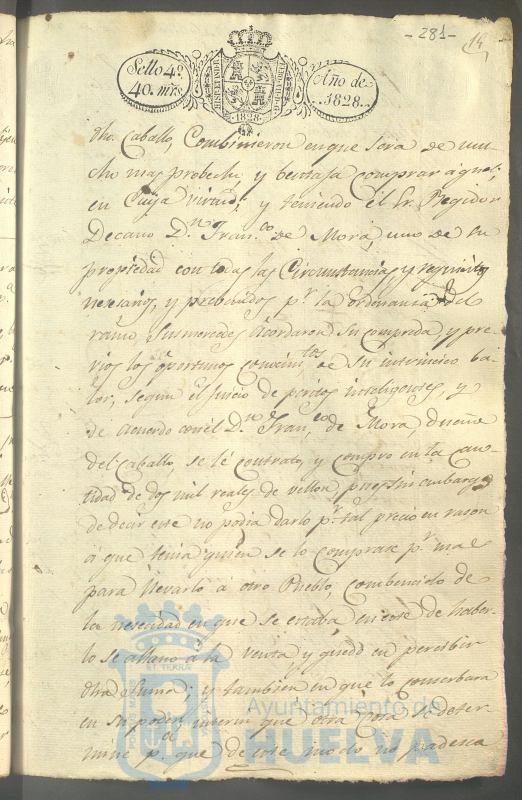 -281-
14
Sello 4º
40. mrs.
HISPET IND R
1828.
Año de
1828.
dho. Caballo, Combinieron en que sera de mu-
cho mas probecho, y bentaja comprar aquel,
en Cuya virtud, y teniendo el Sr. Regidor
Decano Dn. Franco. de Mora, uno de su
propiedad con todas las Circunstancias y requisitos
nesesarios, y prebenidos pr. la ordenanza del
ramo, Sus mercedes Acordaron su comprada y pre-
vios los oportunos conocimtos. de su intrinsico ba-
lor, segun el juicio de peritos inteligentes, y
de acuerdo con el Dn. Franco. de Mora, dueño
del Caballo, se le contrato, y compro en la Can-
tidad de dos mil reales de vellon, pues sin embargo
de decir este no podia darlo pr. tal precio en rason
a que tenia quien se lo comprase pr. mas
para llevarlo á otro Pueblo, combencido de
la nesesidad en que se estaba en este de haber-
lo se allano á la venta y quedó en percibir
dha. suma; y tambien en que lo conserbara
en su poder interin que otra Cosa se deter-
mine pa. que de este modo no padesca
Ayuntamiento de
HUELVA